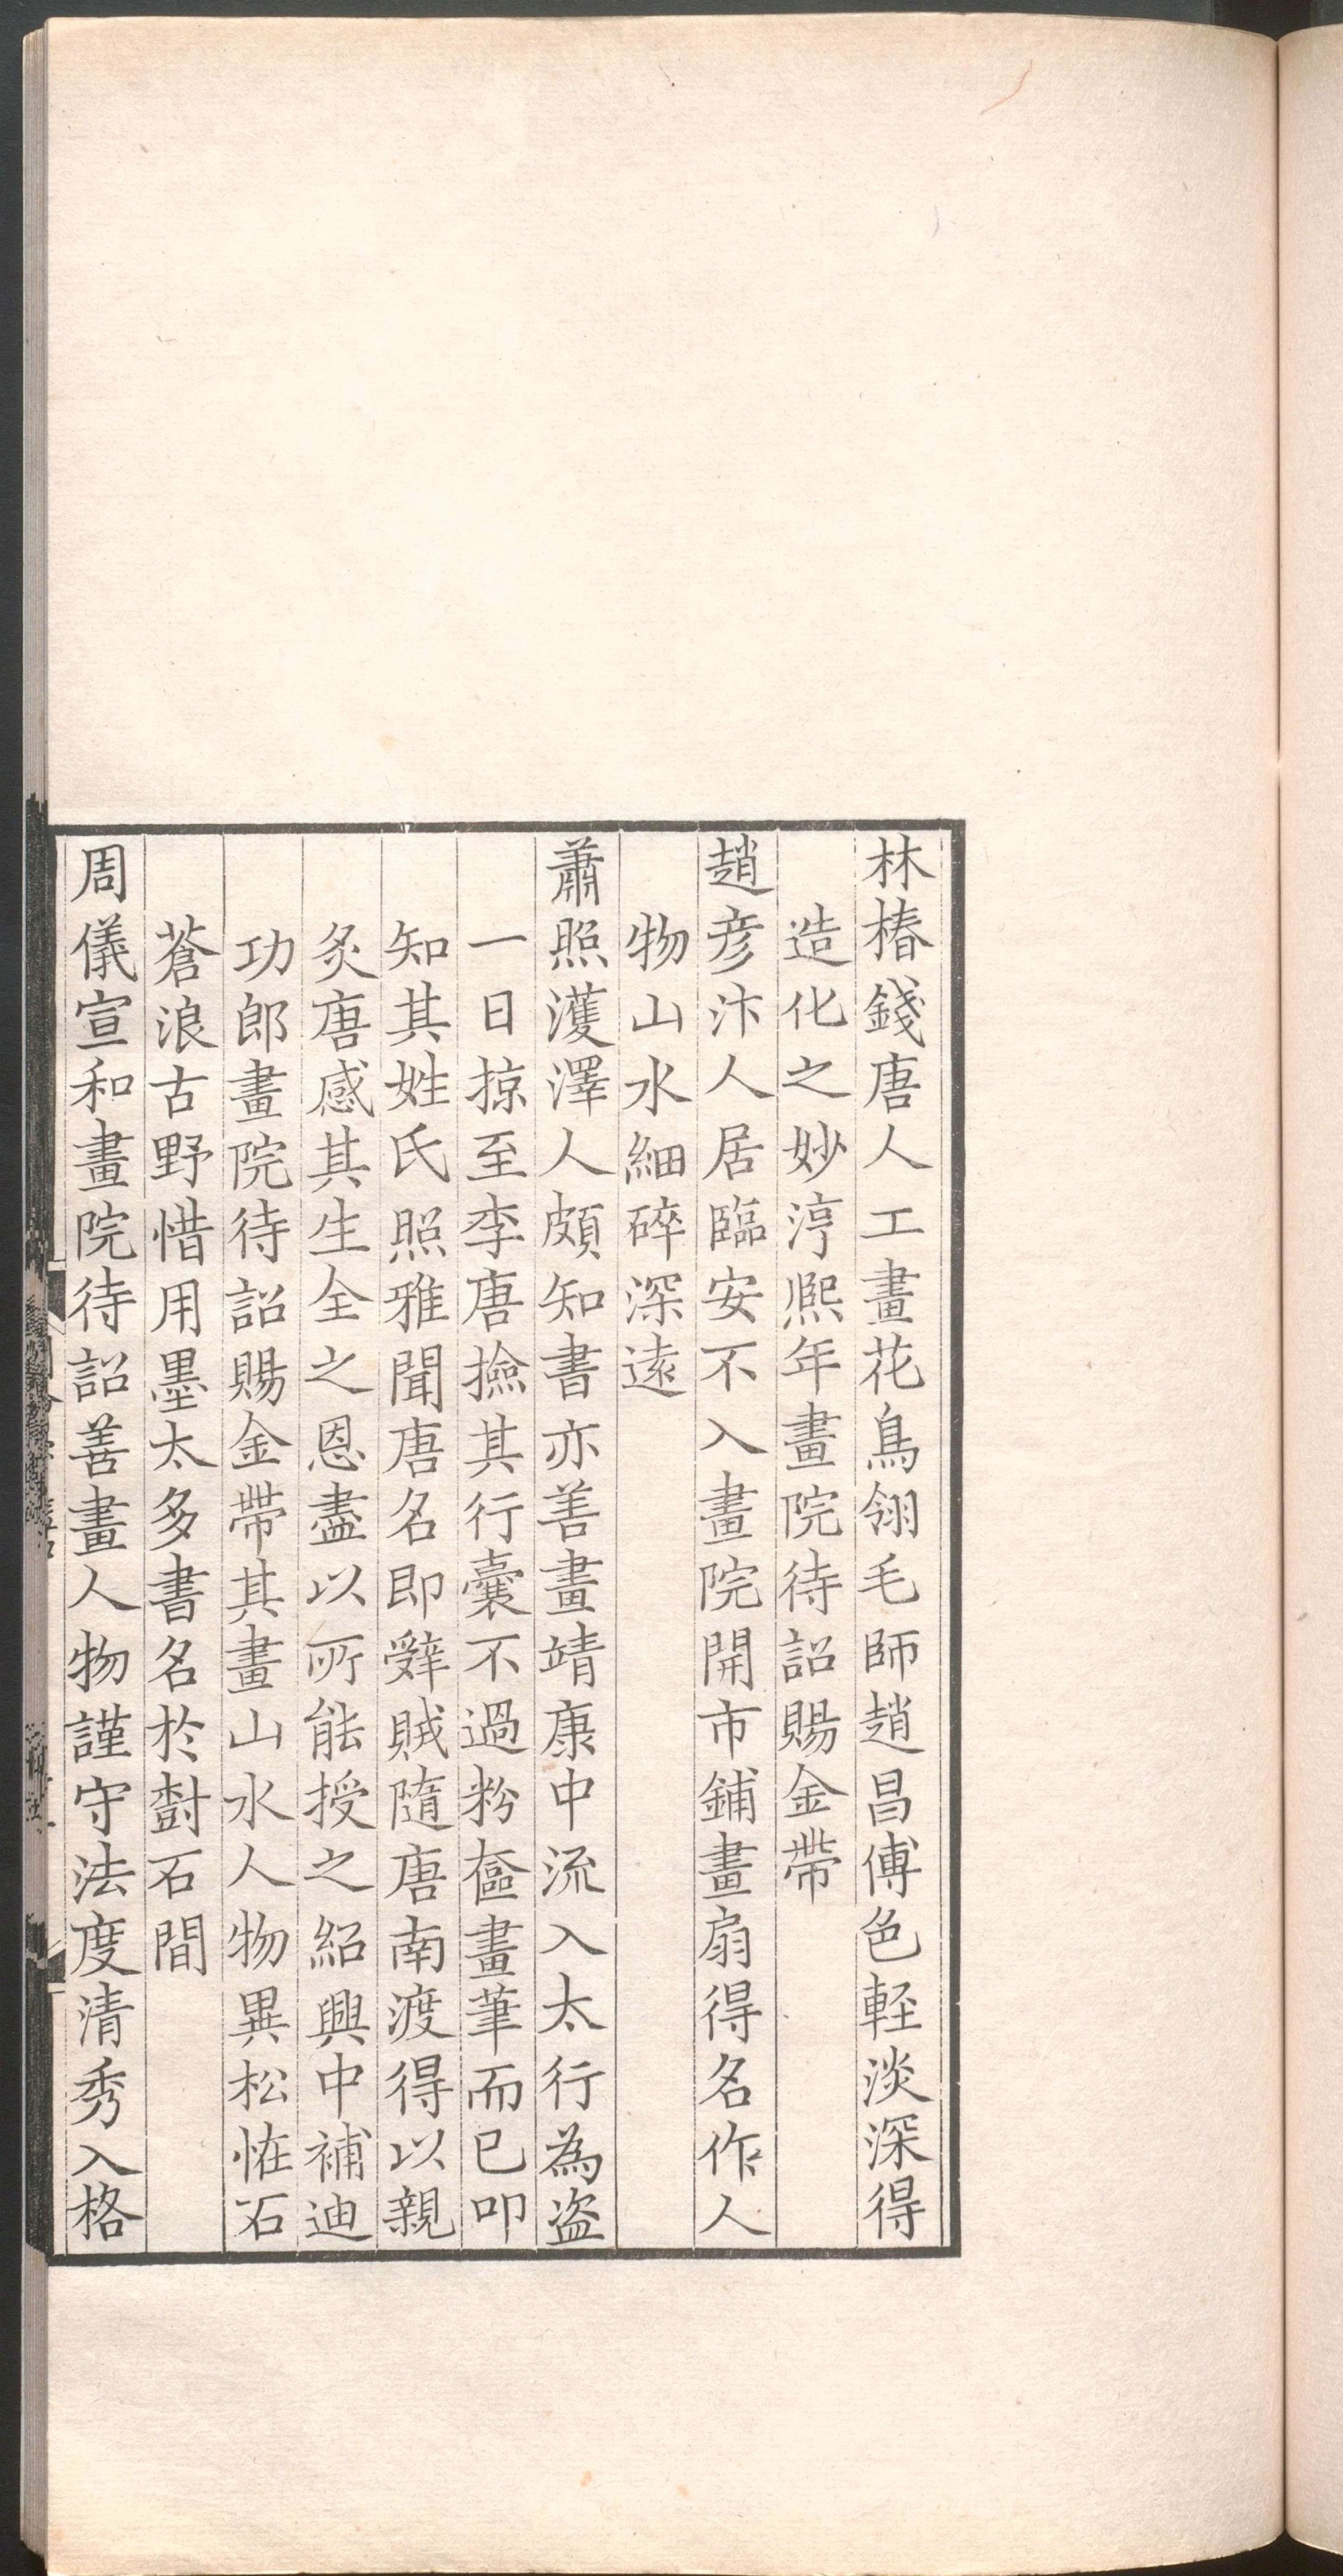 林椿錢唐人工畫花鳥翎毛師趙昌傅色輕淡深得
造化之妙淳熈年畫院待詔賜金帶
趙彦汴人居臨安不入畫院開市鋪畫扇得名作人
物山水細碎深遠
蕭照濩澤人頗知書亦善畫靖康中流入太行為盗
一日掠至李唐撿其行囊不過粉奩畫筆而已叩
知其姓氏照雅聞唐名即辤賊隨唐南渡得以親
炙唐感其生全之恩盡以所能授之紹興中補迪
功郎畫院待詔賜金帶其畫山水人物異松恠石
蒼浪古野惜用墨太多書名於𣗳石間
周儀宣和畫院待詔善畫人物謹守法度清秀入格